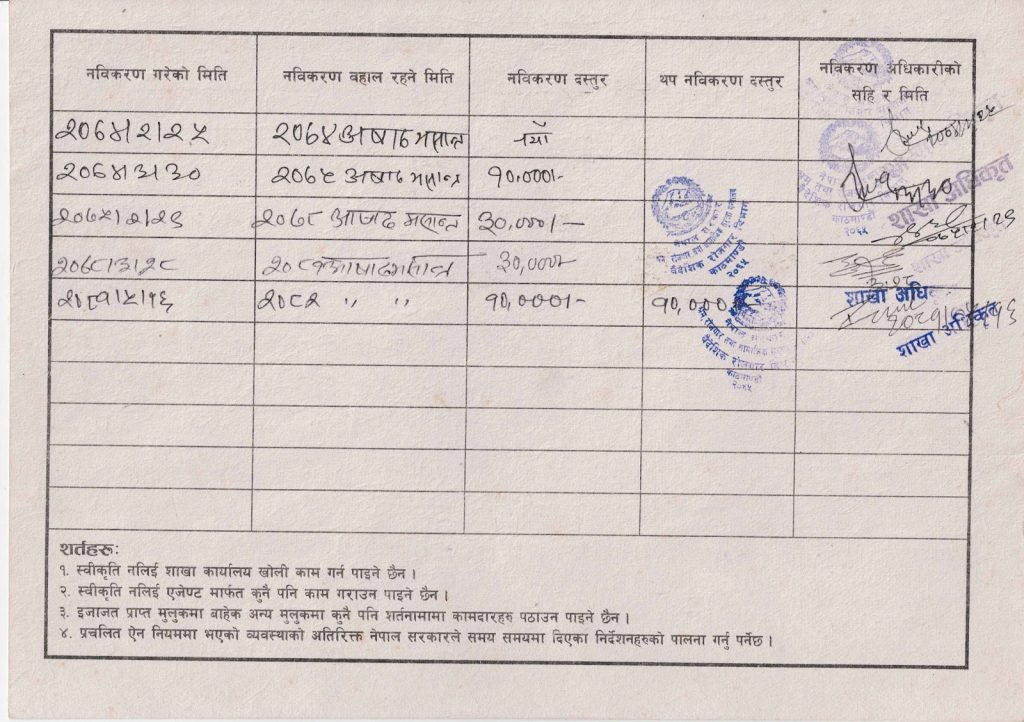 नविकरण गरेको मिति नविकरण वहाल रहने मिति नविकरण दस्तुर थप नविकरण दस्तुर नविकरण अधिकारीको
सहि र मिति
२०६४।२।२५ २०६४ अषाढ मसान्त नयाँ
२०६४।३।३० २०६५ अषाढ मसान्त १०,०००।-
२०६५।२।२९ २०६८ आषाढ मसान्त ३०,०००।-
२०६८।३।२८ आषाढ मसान्त ३०,०००।-
२०८१।५।१६ २०८२ ,, ,, १०,०००।- १०,०००
शाखा अधिकृत
शाखा अधि
शाखा अधिकृत
नेपाल सरकार
वैदेशिक रोजगार विभाग
काठमाण्डौ
२०६५
काठमाण्डौ
२०६५
शर्तहरू:
१. स्वीकृति नलिई शाखा कार्यालय खोली काम गर्न पाइने छैन ।
२. स्वीकृति नलिई एजेण्ट मार्फत कुनै पनि काम गराउन पाइने छैन ।
३. इजाजत प्राप्त मुलुकमा बाहेक अन्य मुलुकमा कुनै पनि शर्तनामामा कामदारहरु पठाउन पाइने छैन ।
४. प्रचलित ऐन नियममा भएको व्यवस्थाको अतिरिक्त नेपाल सरकारले समय समयमा दिएका निर्देशनहरुको पालना गर्नु पर्नेछ ।